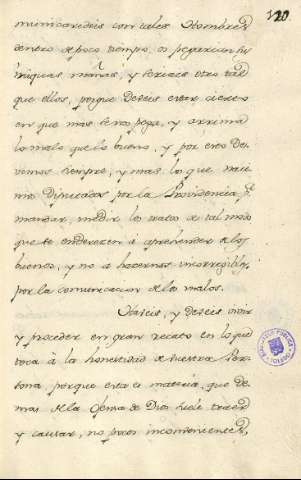 120.
municaredeis con tales Hombres,
dentro de poco tiempo, os pegarian sus
iniquas mañas, y seriais otro tal
que ellos, porque deveis estar ciertos
en que mas se nos pega, y arrima
lo malo que lo bueno, y por esto de-
vemos siempre, y mas los que naci-
mos Diputados por la Providencia pª
mandar, medir los tratos de tal modo
que se enderecen a aprehender de los
buenos, y no a hacernos incorregibles,
por la comunicacion de los malos.
Haveis, y deveis vivir
y proceder en gran recato en lo que
toca à la honestidad de vuestra Per-
sona, porque esta es materia, que de-
mas de la ofensa de Dios suele traer
y causar, no pocos inconvenientes,
BIBLIOTECA PUBLICA
TOLEDO